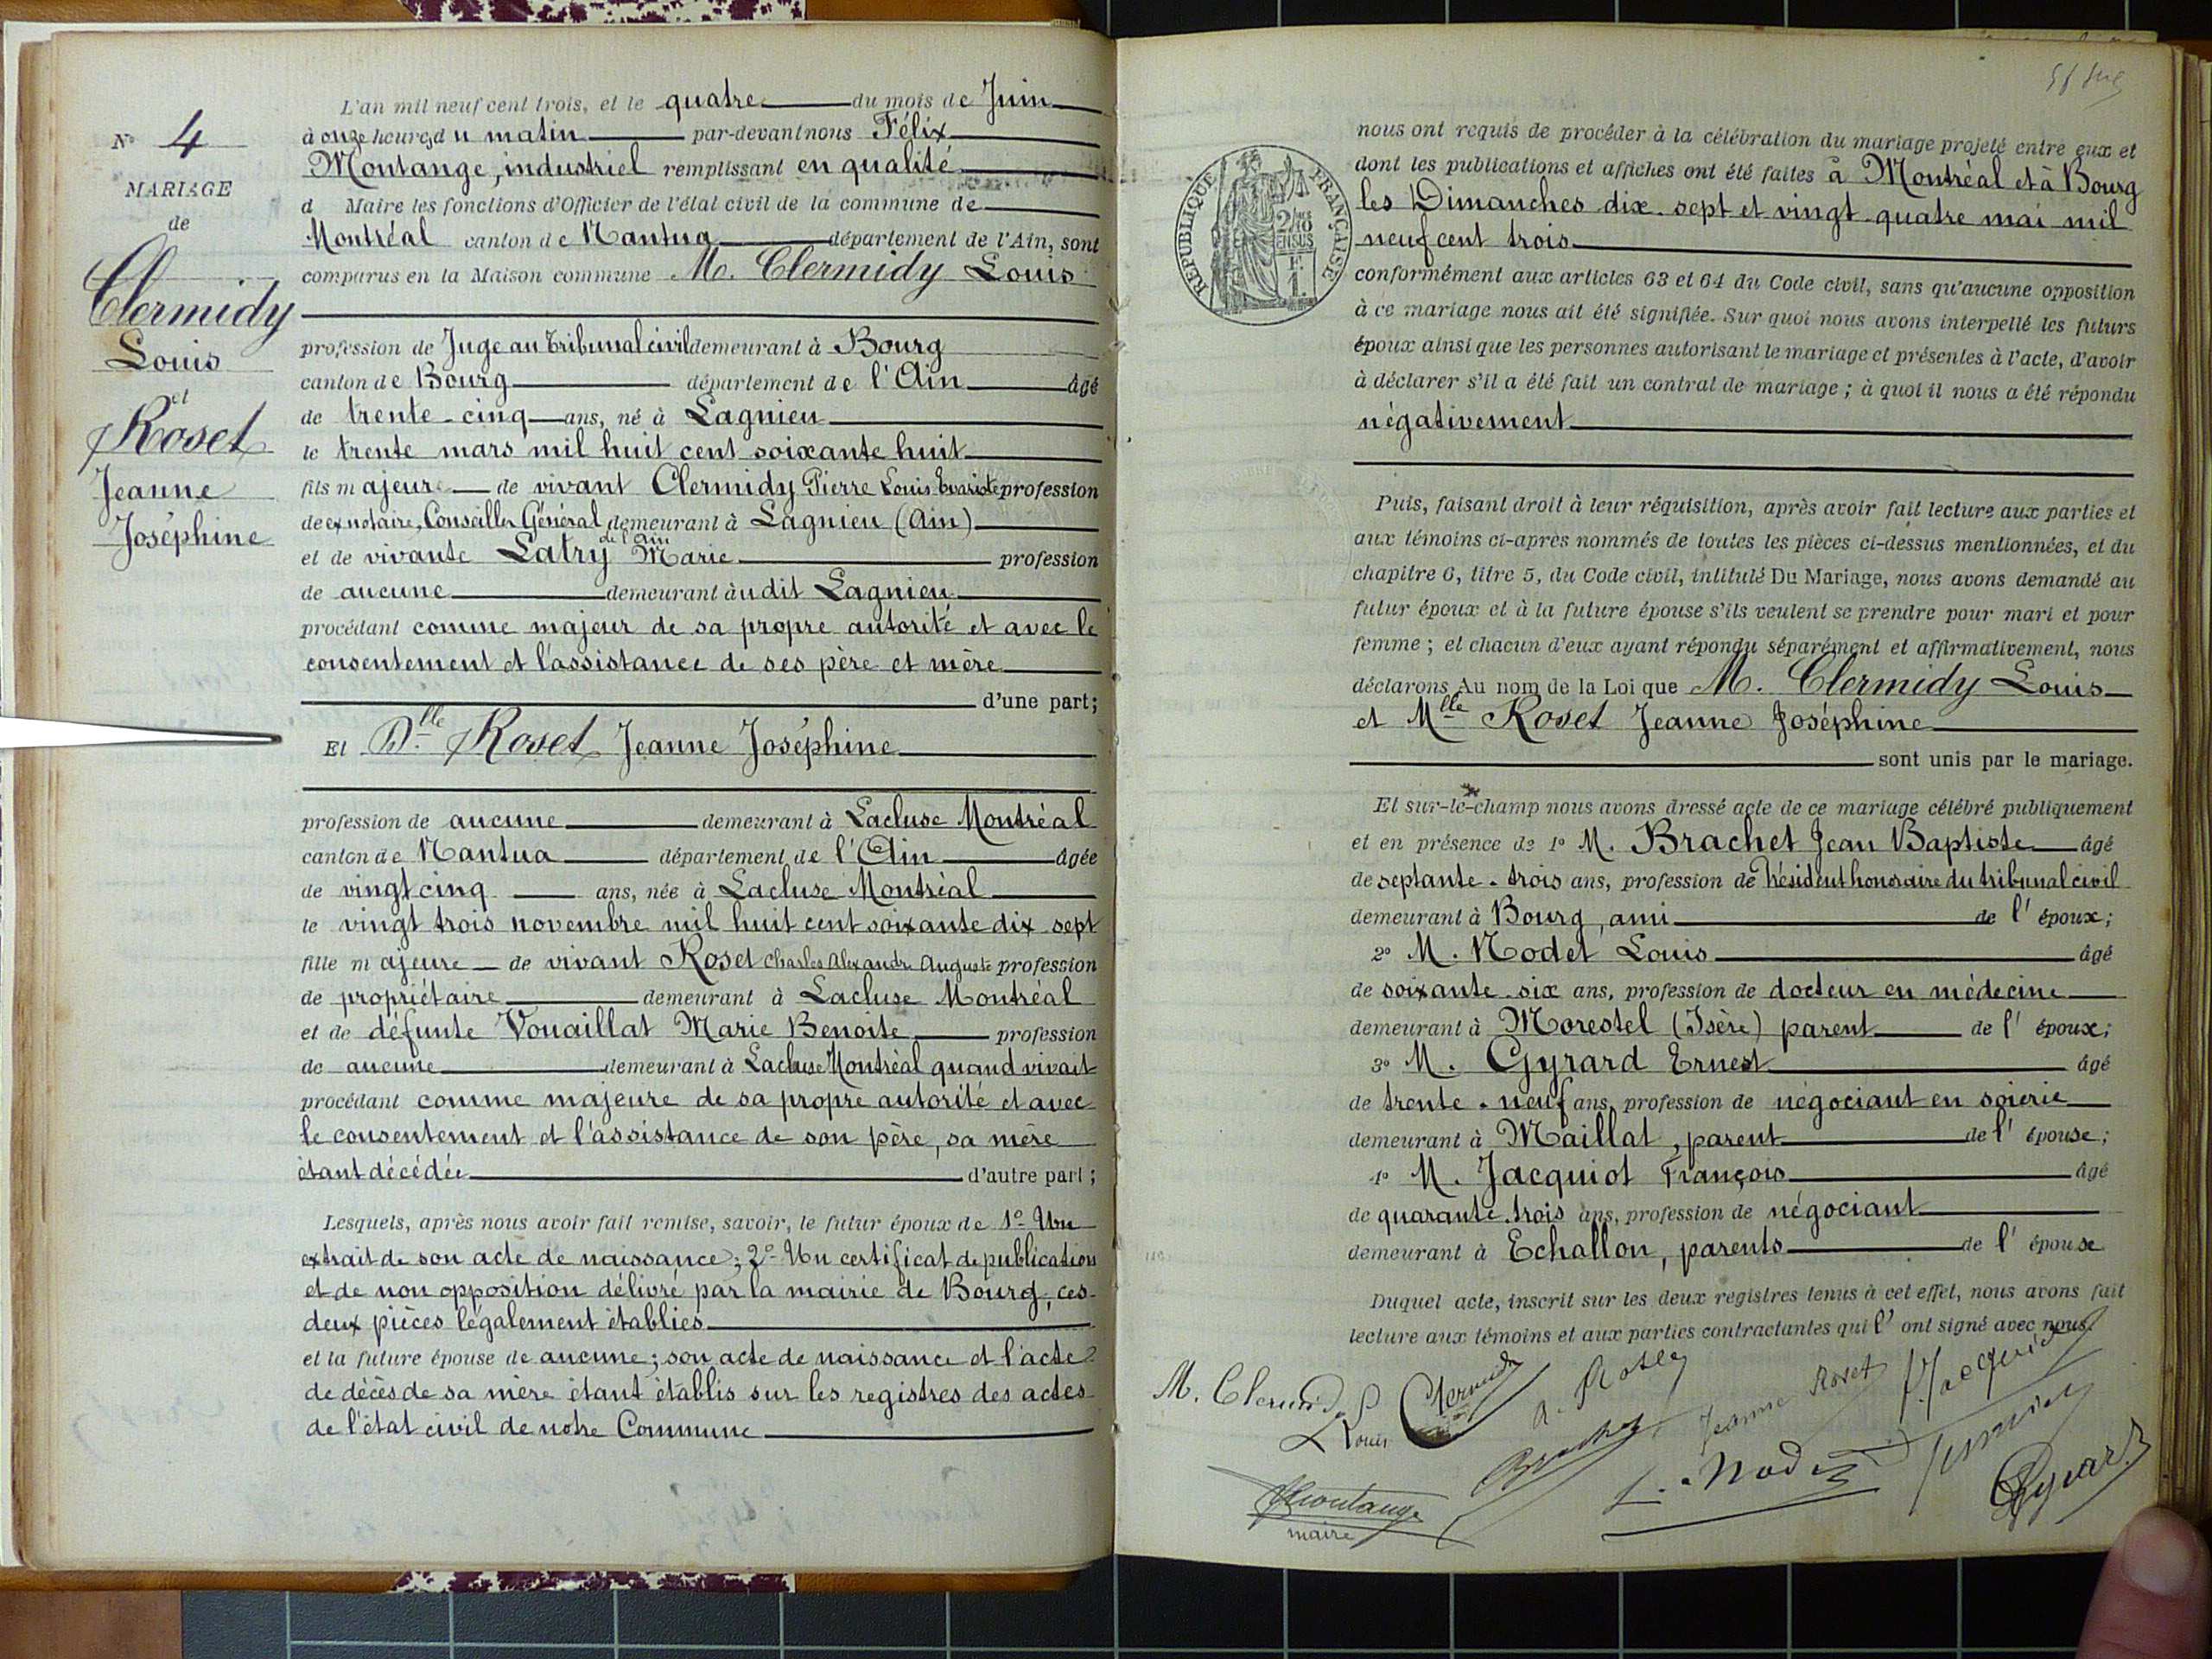 N° 4
MARIAGE
de
Clermidy
Louis
et
Roset
Jeanne
Joséphine
L'an mil neuf cent trois, et le quatre du mois de Juin
à onze heures du matin par-devant nous Félix
Montange, industriel remplissant en qualité
d Maire les fonctions d'Officier de l'état civil de la commune de
Montréal canton de Nantua département de l'Ain, sont
comparus en la Maison commune M. Clermidy Louis
profession de Juge au Tribunal civil demeurant à Bourg
canton de Bourg département de l'Ain âgé
de trente-cinq ans, né à Lagnieu
le trente mars mil huit cent soixante huit
fils majeur de vivant Clermidy Pierre Louis Evariste profession
de ex notaire, Conseiller Général de l'Ain demeurant à Lagnieu (Ain)
et de vivante Latry Marie profession
de aucune demeurant àudit Lagnieu
procédant comme majeur de sa propre autorité et avec le
consentement et l'assistance de ses père et mère
d'une part;
Et Dlle Roset Jeanne Joséphine
profession de aucune demeurant à Lacluse Montréal
canton de Nantua département de l'Ain âgée
de vingt cinq ans, née à Lacluse Montréal
le vingt trois novembre mil huit cent soixante dix sept
fille majeure de vivant Roset Charles Alexandre Auguste profession
de propriétaire demeurant à Lacluse Montréal
et de défunte Vouaillat Marie Benoite profession
de aucune demeurant à Lacluse Montréal quand vivait
procédant comme majeure de sa propre autorité et avec
le consentement et l'assistance de son père, sa mère
étant décédée d'autre part;
Lesquels, après nous avoir fait remise, savoir, le futur époux de 1° Un
extrait de son acte de naissance; 2° Un certificat de publication
et de non opposition délivré par la mairie de Bourg, ces
deux pièces légalement établies
et la future épouse de aucune; son acte de naissance et l'acte
de décès de sa mère étant établis sur les registres des actes
de l'état civil de notre Commune
RÉPUBLIQUE FRANÇAISE
2/10es
EN SUS
F.
1.
nous ont requis de procéder à la célébration du mariage projeté entre eux et
dont les publications et affiches ont été faites à Montréal et à Bourg
les Dimanches dix-sept et vingt-quatre mai mil
neuf cent trois
conformément aux articles 63 et 64 du Code civil, sans qu'aucune opposition
à ce mariage nous ait été signifiée. Sur quoi nous avons interpellé les futurs
époux ainsi que les personnes autorisant le mariage et présentes à l'acte, d'avoir
à déclarer s'il a été fait un contrat de mariage; à quoi il nous a été répondu
négativement
Puis, faisant droit à leur réquisition, après avoir fait lecture aux parties et
aux témoins ci-après nommés de toutes les pièces ci-dessus mentionnées, et du
chapitre 6, titre 5, du Code civil, intitulé Du Mariage, nous avons demandé au
futur époux et à la future épouse s'ils veulent se prendre pour mari et pour
femme; et chacun d'eux ayant répondu séparément et affirmativement, nous
déclarons Au nom de la Loi que M. Clermidy Louis
et Mlle Roset Jeanne Joséphine
sont unis par le mariage.
Et sur-le-champ nous avons dressé acte de ce mariage célébré publiquement
et en présence de 1° M. Brachet Jean Baptiste âgé
de septante-trois ans, profession de Président honoraire du tribunal civil
demeurant à Bourg, ami de l'époux;
2° M. Nodet Louis âgé
de soixante-six ans, profession de docteur en médecine
demeurant à Morestel (Isère) parent de l'époux;
3° M. Gyrard Ernest âgé
de trente-neuf ans, profession de négociant en soierie
demeurant à Maillat, parent de l'épouse;
4° M. Jacquiot François âgé
de quarante-trois ans, profession de négociant
demeurant à Echallon, parents de l'épouse
Duquel acte, inscrit sur les deux registres tenus à cet effet, nous avons fait
lecture aux témoins et aux parties contractantes qui l'ont signé avec nous.
M. Clermidy
Louis Clermidy
A. Roset
Jeanne Roset
F. Jacquiot
Brachet
L. Nodet
Gyrard
Montange
maire